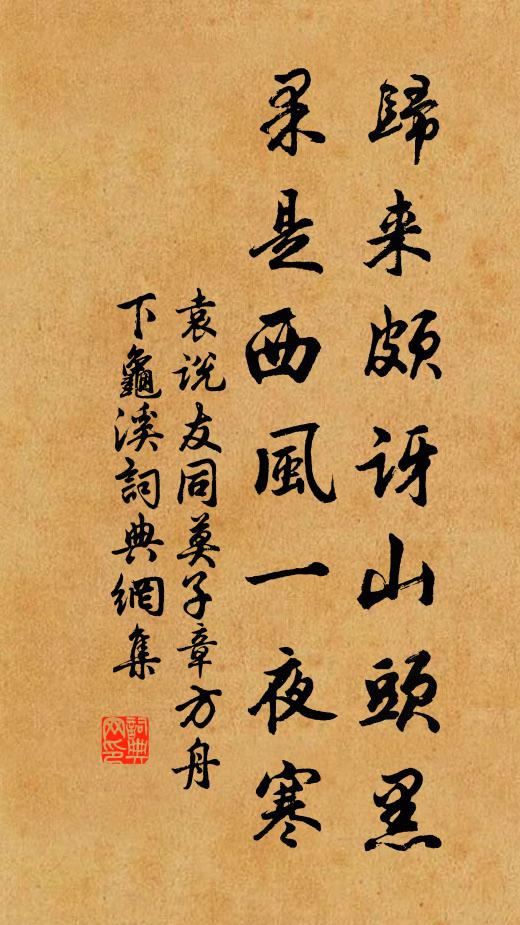 歸来頗訝山頭黑
果是西風一夜寒
袁説友同莫子章方舟
下龜溪詞典網集
詞典
网印